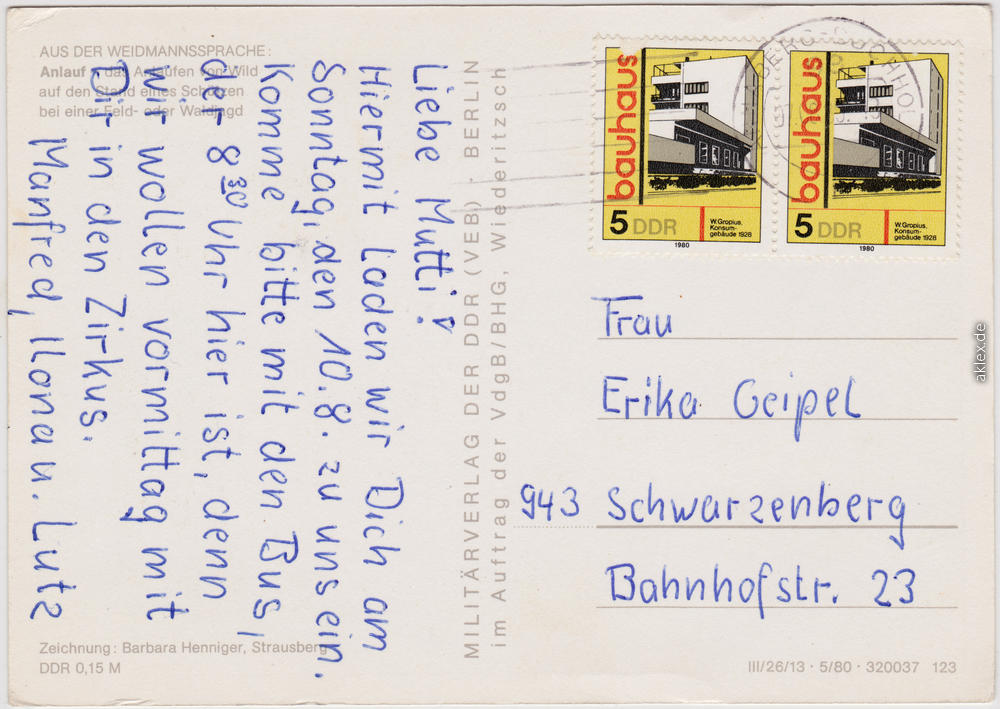 AUS DER WEIDMANNSSPRACHE:
Anlauf = das Anlaufen von Wild
auf den Stand eines Schützen
bei einer Feld- oder Waldjagd
Liebe Mutti!
Hiermit laden wir Dich am
Sonntag, den 10.8. zu uns ein.
Komme bitte mit den Bus,
der 8³⁰ Uhr hier ist, denn
wir wollen vormittag mit
Dir in den Zirkus.
Manfred, Ilona u. Lutz
Zeichnung: Barbara Henniger, Strausberg
DDR 0,15 M
MILITÄRVERLAG DER DDR (VEB) · BERLIN
im Auftrag der VdgB/BHG, Wiederitzsch
bauhaus
5 DDR
W. Gropius,
Konsum-
gebäude 1928
1980
bauhaus
5 DDR
W. Gropius,
Konsum-
gebäude 1928
1980
Frau
Erika Geipel
943 Schwarzenberg
Bahnhofstr. 23
III/26/13 · 5/80 · 320037 123
aklex.de